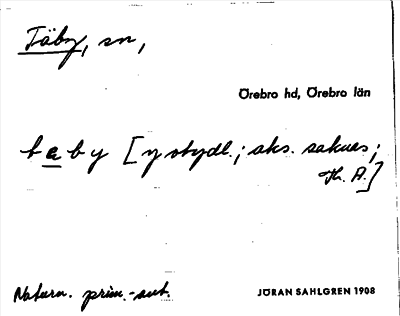 Täby, sn,
Örebro hd, Örebro län
täby [y otydl.; aks. saknas;
Th. A.]
Naturn. prim.-ant.
JÖRAN SAHLGREN 1908